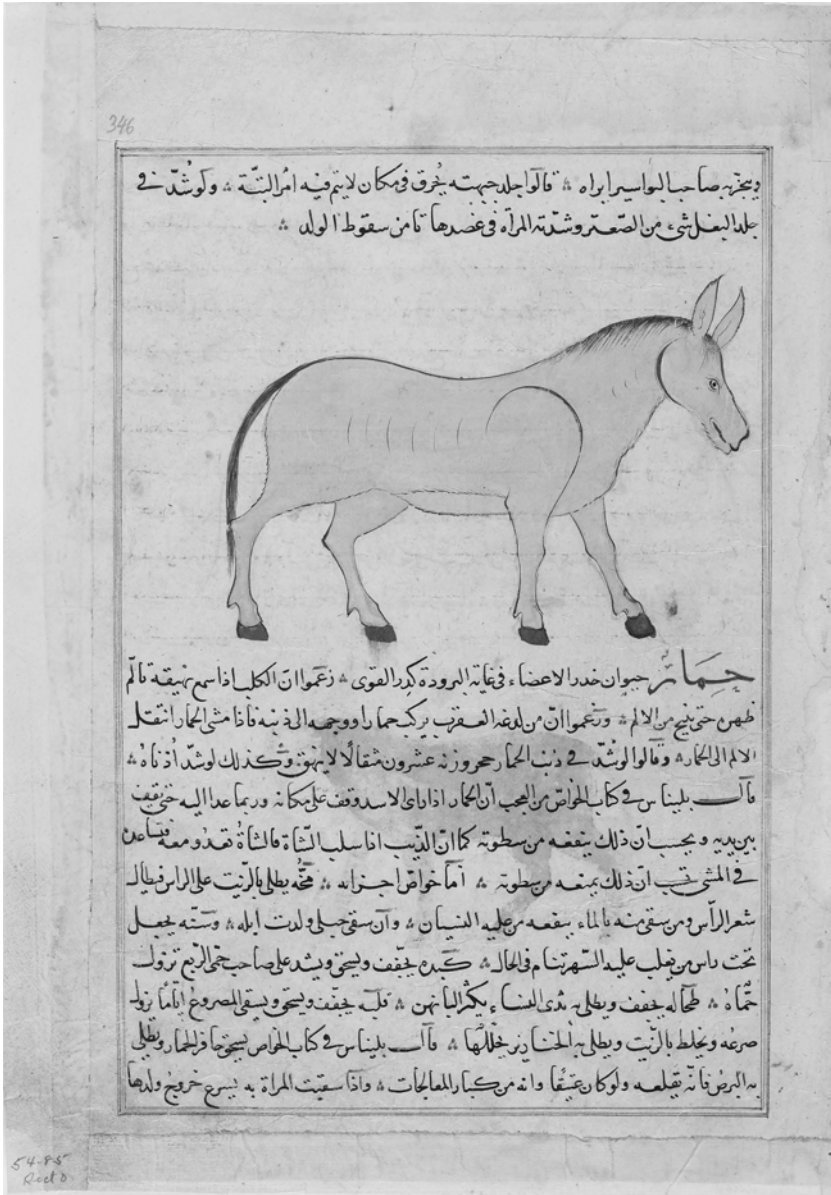 346
صاحب البواسير ابراه ۞ قالوا جلد جبهته يحرق فى مكان لا يتم فيه امر البتّة ۞ ولو شدّ فى
جلد البغل شىء من الصعتر وشدّته المرأه فى عضدها تامن سقوط الولد ۞
حِمَار حيوان خدر الاعضاء فى غاية البرودة كدر القوى ۞ زعموا انّ الكلب اذا سمع نهيقه تالّم
ظهره حتى من الالم ۞ وزعموا انّ من لدغه العقرب يركب حمارا ووجهه الى ذنبه فاذا مشى الحمار انتقل
الالم الى الحمار ۞ وقالوا لو شدّ فى ذنب الحمار حجر وزنه عشرون مثقالًا لا ينهق وكذلك لو شدّ اذناه ۞
قال بليناس فى كتاب الخواص من العجب أن الحمار اذا راى الاسد وقف على مكانه وربما عدا اليه حتى يقف
بين يديه ويحسب انّ ذلك ينفعه من سطوته كما انّ الذّيب اذا سلب الشّاة فالشاة تعدو معه
فى المشى انّ ذلك يمنعه من سطوته ۞ أما خواصّ اجزائه ۞ مخّه يطلى بالزّيت على الراس فيطال
شعر الرّاس ومن سقى منه بالماء عليه النسيان ۞ وان سقى حبلى ولدت ابله ۞ وسنّه يجعل
تحت راس من يغلب عليه السّهر تنام فى الحال ۞ كبده يجفّف ويسحق ويشد على صاحب حمّى الرّبع تزول
حمّاه ۞ طحاله يجفف ويطلى به ثدى النساء يكثر البانهن ۞ قلبه يجفّف ويسحق ويسقى المصروع ايّامًا يزول
صرعه ويخلط بالزّيت ويطلى به الخنازير يحللها ۞ قال بليناس فى كتاب الخواص يسحق حافر الحمار ويطلى
به البرص فانّه يقلعه ولو كان عتيقًا وانه من كبار المعالجات ۞ واذا سقيت المرأة به يسرع خروج ولدها
54.85
Recto